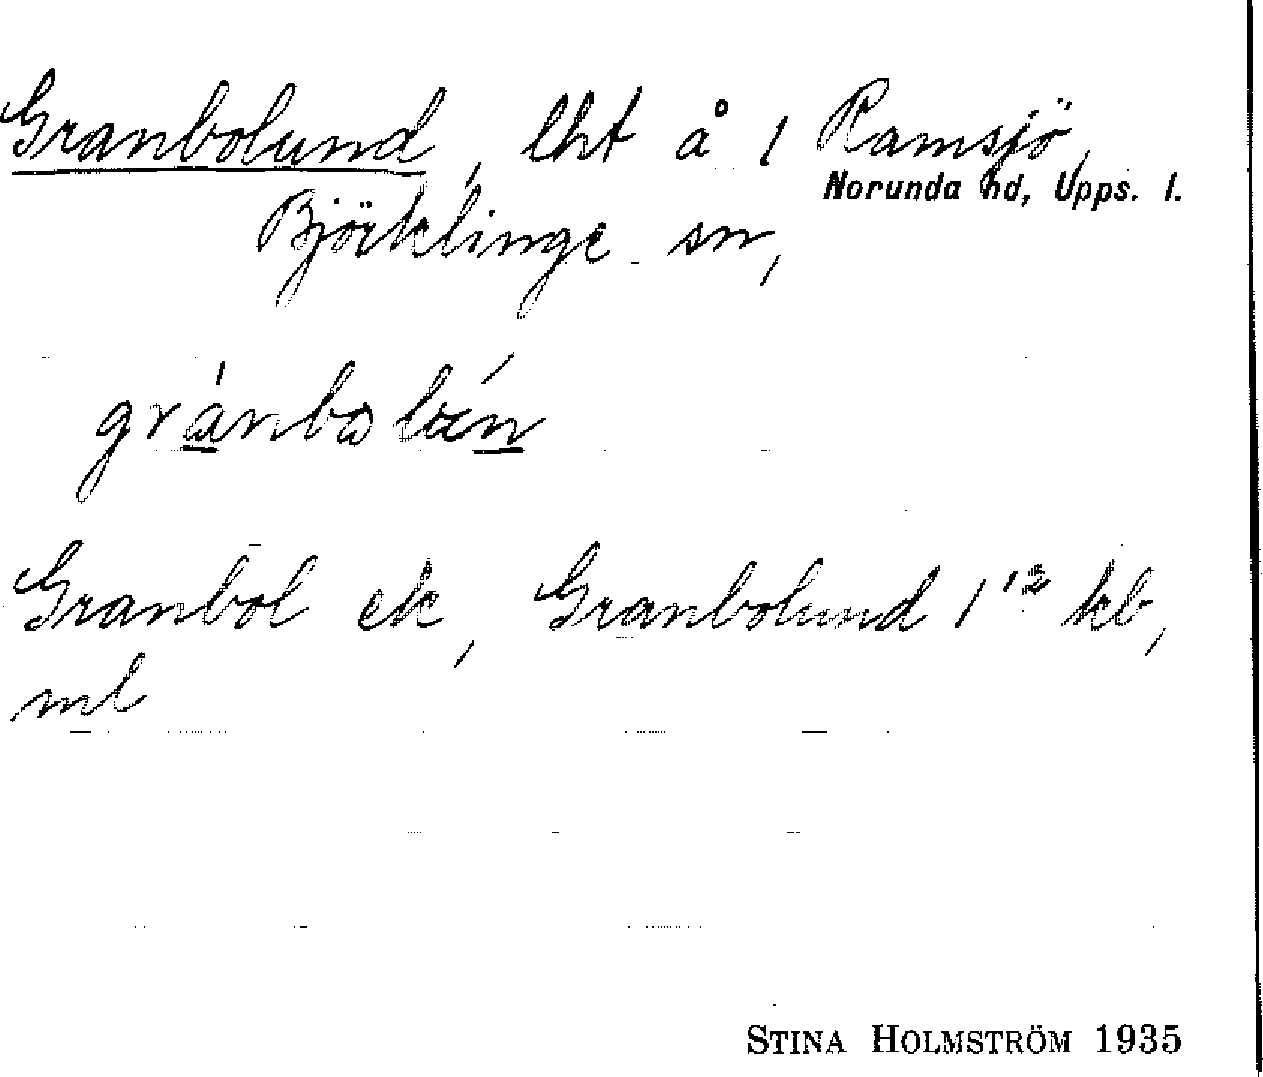 Granbolund, lht å 1 Ramsjö,
Norunda hd, Upps. l.
Björklinge sn,
Granbol ek, Granbolund 1¹² kb,
ml
STINA HOLMSTRÖM 1935